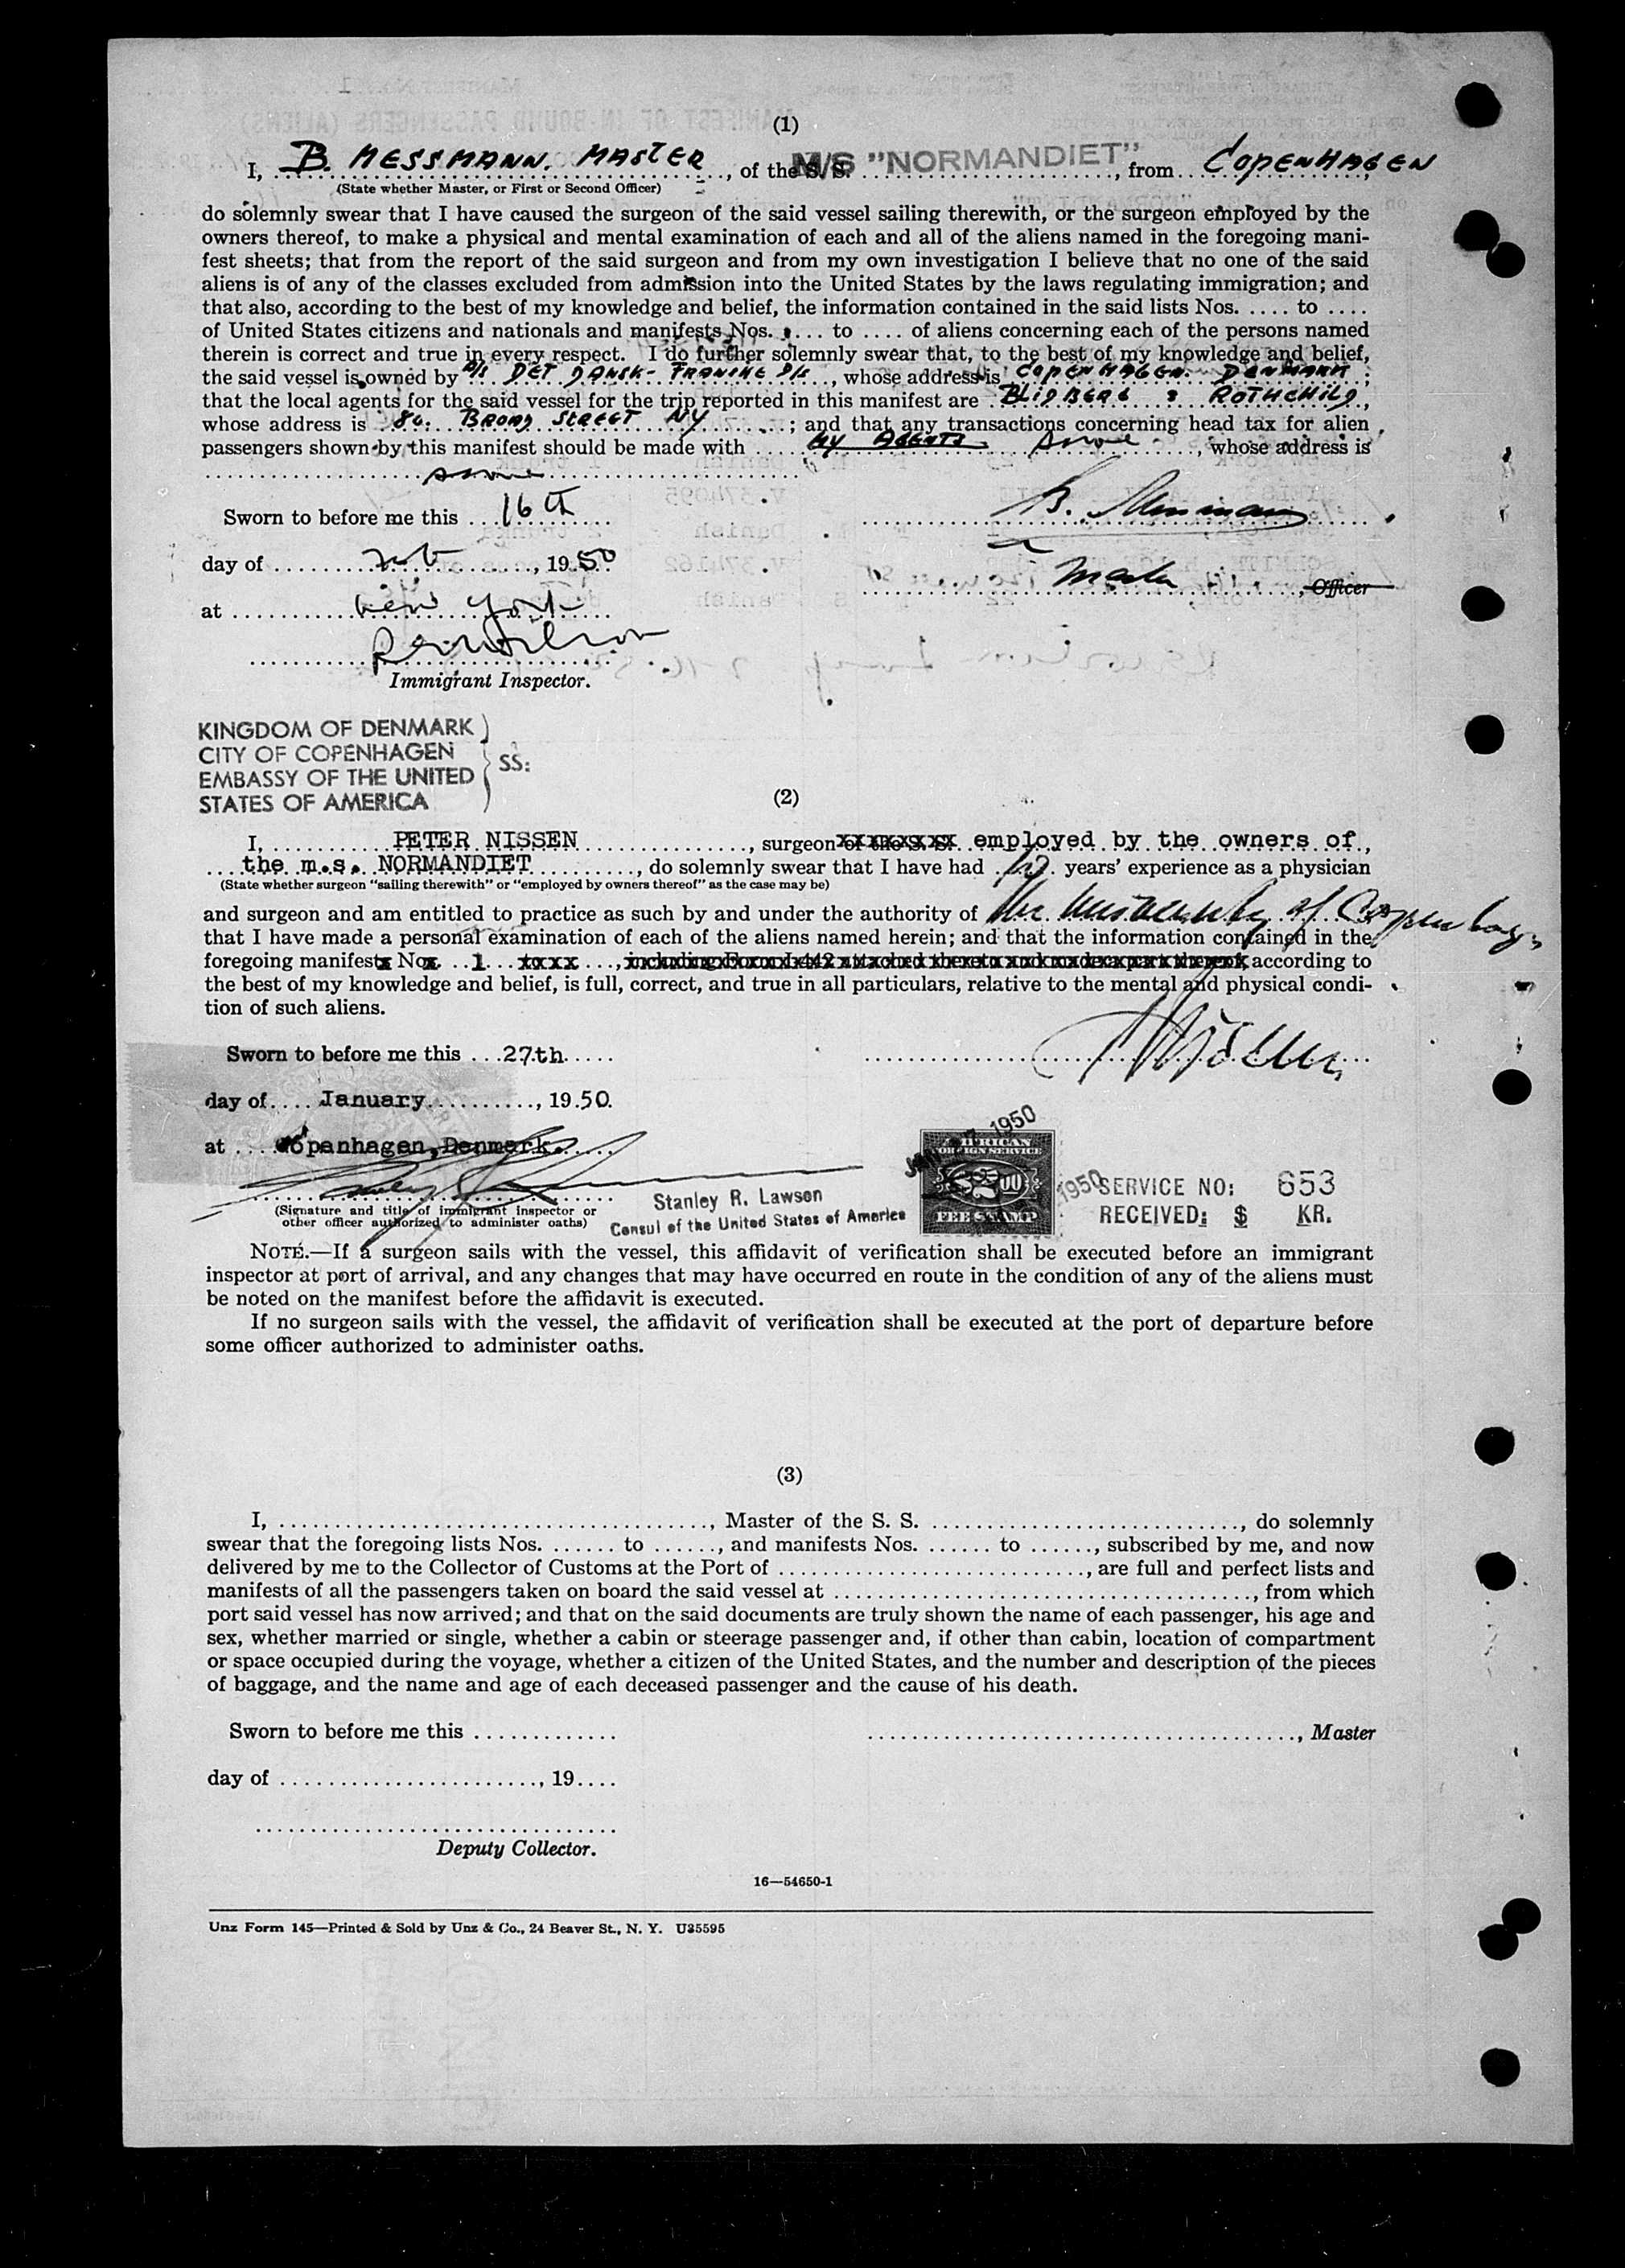 (1)
I, B. MESSMANN. MASTER, of the S. S. M/S "NORMANDIET", from COPENHAGEN,
(State whether Master, or First or Second Officer)
do solemnly swear that I have caused the surgeon of the said vessel sailing therewith, or the surgeon employed by the
owners thereof, to make a physical and mental examination of each and all of the aliens named in the foregoing mani-
fest sheets; that from the report of the said surgeon and from my own investigation I believe that no one of the said
aliens is of any of the classes excluded from admission into the United States by the laws regulating immigration; and
that also, according to the best of my knowledge and belief, the information contained in the said lists Nos. .... to ....
of United States citizens and nationals and manifests Nos. .... to .... of aliens concerning each of the persons named
therein is correct and true in every respect. I do further solemnly swear that, to the best of my knowledge and belief,
the said vessel is owned by A/S DET DANSK-FRANSKE D/S, whose address is COPENHAGEN. DENMARK;
that the local agents for the said vessel for the trip reported in this manifest are BLIDBERG & ROTHCHILD,
whose address is 80. BROAD STREET NY; and that any transactions concerning head tax for alien
passengers shown by this manifest should be made with MY AGENTS above, whose address is
above
Sworn to before me this 16th
B. Messmann
day of Feb, 1950
Master, Officer
at New York
Immigrant Inspector.
KINGDOM OF DENMARK
CITY OF COPENHAGEN
EMBASSY OF THE UNITED
STATES OF AMERICA
SS:
(2)
I, PETER NISSEN, surgeon of the S. S. employed by the owners of,
the m.s. NORMANDIET, do solemnly swear that I have had years' experience as a physician
(State whether surgeon "sailing therewith" or "employed by owners thereof" as the case may be)
and surgeon and am entitled to practice as such by and under the authority of the University of Copenhagen
that I have made a personal examination of each of the aliens named herein; and that the information contained in the
foregoing manifest No. 1 according to
the best of my knowledge and belief, is full, correct, and true in all particulars, relative to the mental and physical condi-
tion of such aliens.
Sworn to before me this 27th
day of January, 1950.
at Copenhagen, Denmark.
(Signature and title of immigrant inspector or
other officer authorized to administer oaths)
Stanley R. Lawson
Consul of the United States of America
1950
AMERICAN
FOREIGN SERVICE
$2.00
FEE STAMP
1950
SERVICE NO: 653
RECEIVED: $ KR.
NOTE.—If a surgeon sails with the vessel, this affidavit of verification shall be executed before an immigrant
inspector at port of arrival, and any changes that may have occurred en route in the condition of any of the aliens must
be noted on the manifest before the affidavit is executed.
If no surgeon sails with the vessel, the affidavit of verification shall be executed at the port of departure before
some officer authorized to administer oaths.
(3)
I, ........................................, Master of the S. S. ............................, do solemnly
swear that the foregoing lists Nos. ....... to ......, and manifests Nos. ....... to ......, subscribed by me, and now
delivered by me to the Collector of Customs at the Port of ............................, are full and perfect lists and
manifests of all the passengers taken on board the said vessel at ......................................, from which
port said vessel has now arrived; and that on the said documents are truly shown the name of each passenger, his age and
sex, whether married or single, whether a cabin or steerage passenger and, if other than cabin, location of compartment
or space occupied during the voyage, whether a citizen of the United States, and the number and description of the pieces
of baggage, and the name and age of each deceased passenger and the cause of his death.
Sworn to before me this .............
......................................., Master
day of ........................, 19....
Deputy Collector.
16—54650-1
Unz Form 145—Printed & Sold by Unz & Co., 24 Beaver St., N. Y. U35595